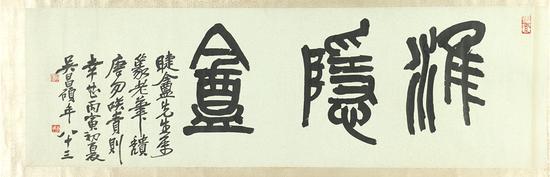 淮隱盦
睫盦先生属
篆老筆穨
唐勿咲責則
幸甚丙寅初夏
吴昌碩年八十三